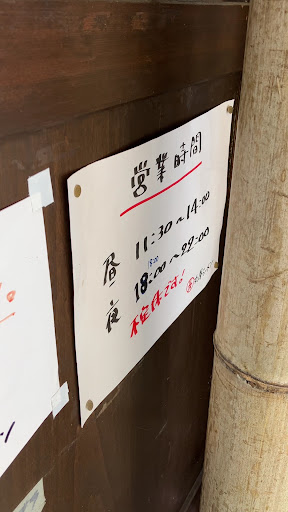 営業時間
昼 11:30~14:00
15:00
夜 18:00~22:00
不定休です!